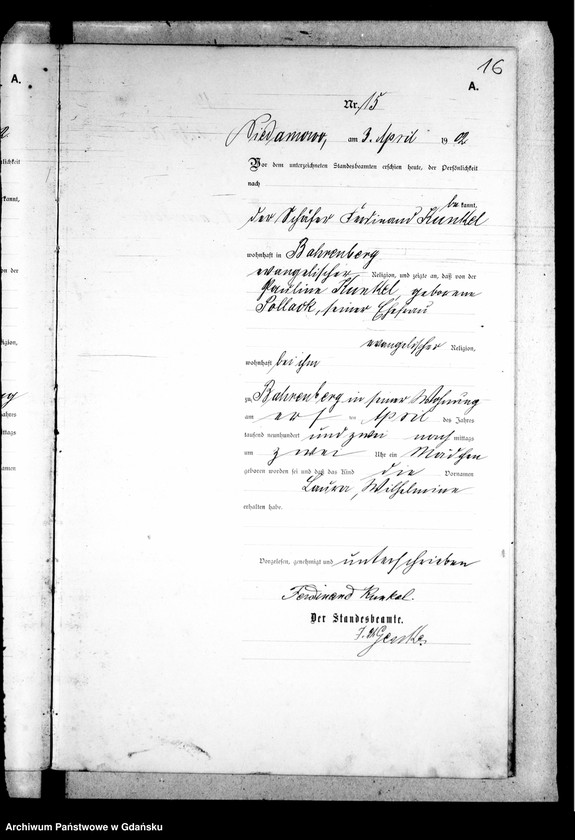 16
A.
A.
Nr. 15
am 3. April 1902
Vor dem unterzeichneten Standesbeamten erschien heute, der Persönlichkeit
nach
be kannt,
der Schäfer Ferdinand Kunkel
wohnhaft in Bahrenberg
evangelischer Religion, und zeigte an, daß von der
Pauline Kunkel, geborene
Pollack, seiner Ehefrau
evangelischer Religion,
wohnhaft bei ihm
zu Bahrenberg in seiner Wohnung
am ersten April des Jahres
tausend neunhundert und zwei nach mittags
um zwei Uhr ein Mädchen
geboren worden sei und daß das Kind die Vornamen
Laura, Wilhelmine
erhalten habe.
Vorgelesen, genehmigt und unterschrieben
Ferdinand Kunkel.
Der Standesbeamte.
Archiwum Państwowe w Gdańsku